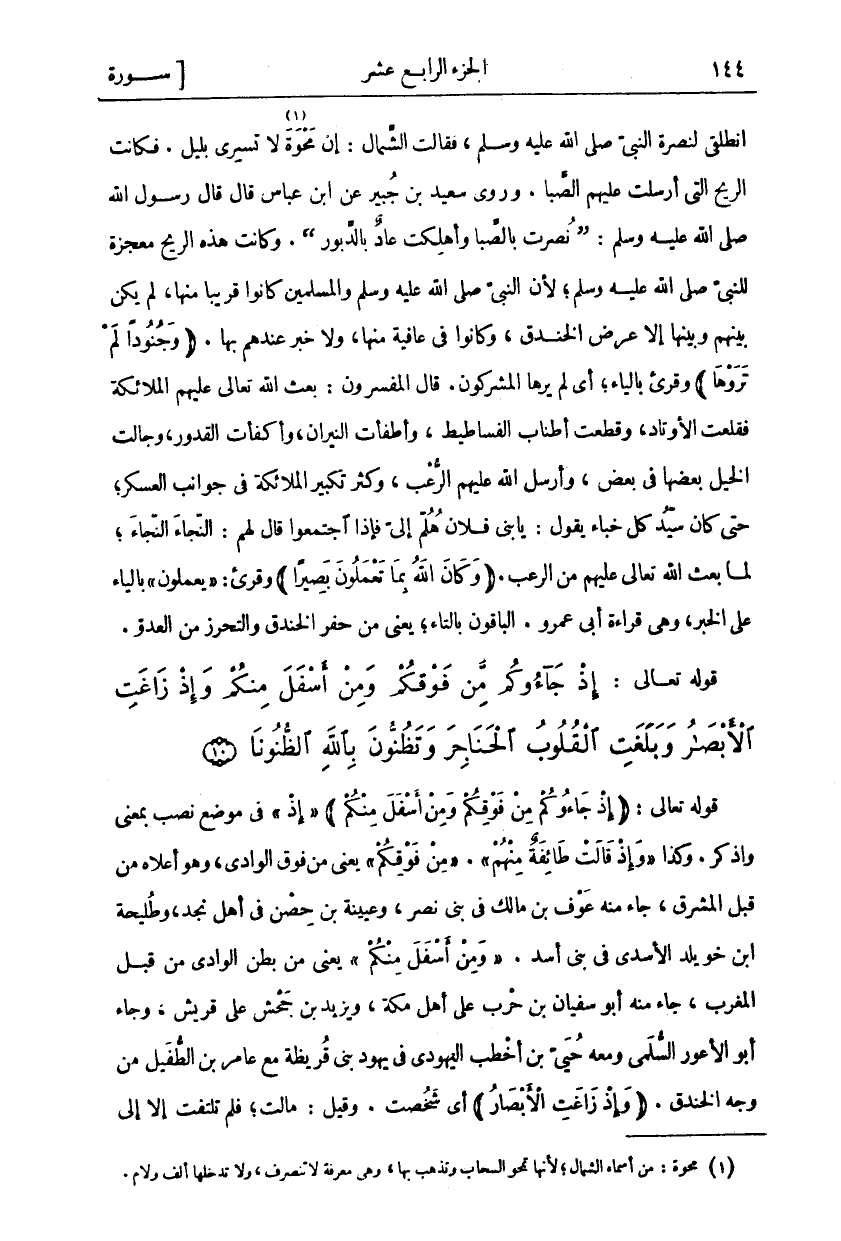 ١٤٤ الجزء الرابع عشر [ ســورة
(١)
انطلقى لنصرة النبىّ صلى الله عليه وسلم ، فقالت الشَّمال : إن مَحْوَةَ لا تسرى بليل . فكانت
الريح التى أرسلت عليهم الصَّبا . وروى سعيد بن جُبير عن ابن عباس قال قال رسول الله
صلى الله عليه وسلم : ”نُصرت بالصَّبا وأهلِكت عادٌ بالدَّبور“ . وكانت هذه الريح معجزة
للنبىّ صلى الله عليه وسلم ؛ لأن النبىّ صلى الله عليه وسلم والمسلمين كانوا قريبا منها ، لم يكن
بينهم وبينها إلا عرض الخندق ، وكانوا فى عافية منها ، ولا خبر عندهم بها . ﴿ وَجُنُودًا لَمْ
تَرَوْهَا ﴾ وقرئ بالياء ؛ أى لم يرها المشركون . قال المفسرون : بعث الله تعالى عليهم الملائكة
فقلعت الأوتاد ، وقطعت أطناب الفساطيط ، وأطفأت النيران ، وأكفأت القدور ، وجالت
الخيل بعضها فى بعض ، وأرسل الله عليهم الرُّعْب ، وكثر تكبير الملائكة فى جوانب العسكر ؛
حتى كان سيّد كل خباء يقول : يابنى فلان هَلُمّ إلىّ فإذا اجتمعوا قال لهم : النَّجاءَ النَّجاءَ ؛
لما بعث الله تعالى عليهم من الرعب . ﴿ وَكَانَ اللهُ بِمَا تَعْمَلُونَ بَصِيرًا ﴾ وقرئ : «يعملون» بالياء
على الخبر ، وهى قراءة أبى عمرو . الباقون بالتاء ؛ يعنى من حفر الخندق والتحرز من العدوّ .
قوله تعالى : إِذْ جَآءُوكُم مِّن فَوْقِكُمْ وَمِنْ أَسْفَلَ مِنكُمْ وَإِذْ زَاغَتِ
ٱلْأَبْصَٰرُ وَبَلَغَتِ ٱلْقُلُوبُ ٱلْحَنَاجِرَ وَتَظُنُّونَ بِٱللَّهِ ٱلظُّنُونَا ۝١٠
قوله تعالى : ﴿ إِذْ جَاءُوكُمْ مِنْ فَوْقِكُمْ وَمِنْ أَسْفَلَ مِنْكُمْ ﴾ «إذْ» فى موضع نصب بمعنى
واذكر . وكذا «وَإِذْ قَالَتْ طَائِفَةٌ مِنْهُمْ» . «مِنْ فَوْقِكُمْ» يعنى من فوق الوادى ، وهو أعلاه من
قبل المشرق ، جاء منه عَوْف بن مالك فى بنى نصر ، وعيينة بن حِصْن فى أهل نجد ، وطُليحة
ابن خويلد الأسدى فى بنى أسد . «وَمِنْ أَسْفَلَ مِنْكُمْ» يعنى من بطن الوادى من قبل
المغرب ، جاء منه أبو سفيان بن حَرْب على أهل مكة ، ويزيد بن جَحْش على قريش ، وجاء
أبو الأعور السُّلَمى ومعه حُيَىّ بن أَخْطب اليهودى فى يهود بنى قُريظة مع عامر بن الطُّفَيل من
وجه الخندق . ﴿ وَإِذْ زَاغَتِ الْأَبْصَارُ ﴾ أى شَخَصت . وقيل : مالت ؛ فلم تلتفت إلا إلى
(١) محوة : من أسماء الشمال ؛ لأنها تمحو السحاب وتذهب بها ، وهى معرفة لا تنصرف ، ولا تدخلها ألف ولام .